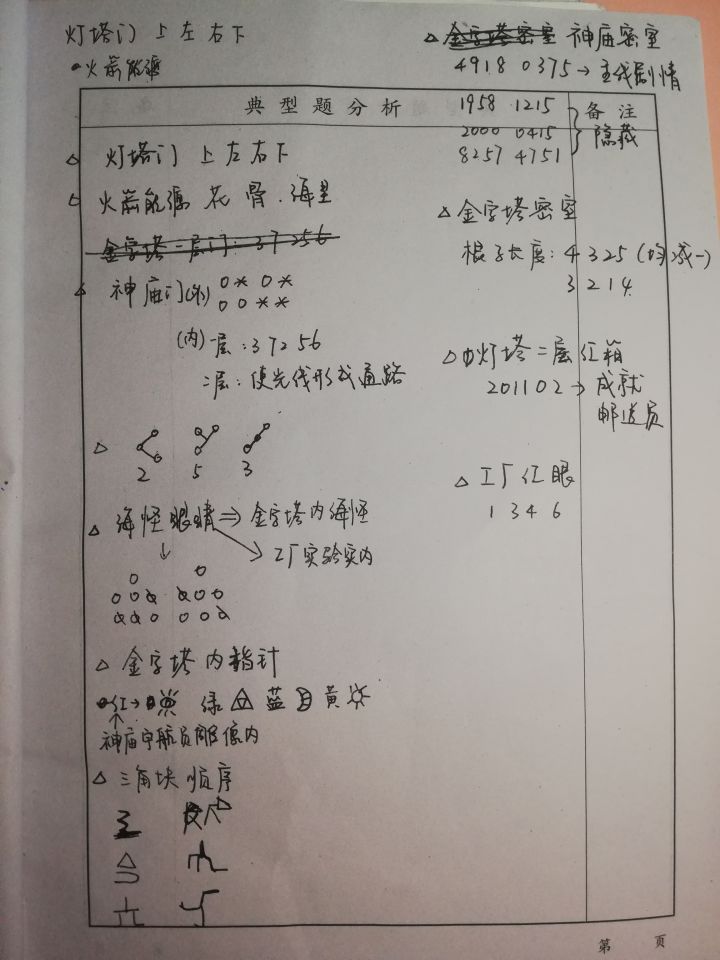 灯塔门 上左右下
火箭能源
典型题分析
△ 灯塔门 上左右下
火箭能源 花 骨 海星
金字塔一层门：37256
△ 神庙门(外) ○*○*
○○**
(内)一层：37256
二层：使光线形成通路
△
2 5 3
△ 海怪眼睛⇒金字塔内海怪
工厂实验室内
△ 金字塔内指针
红→ 绿 蓝 黄
神庙宇航员雕像内
△ 三角块顺序
△ 金字塔密室 神庙密室
4918 0375→主线剧情
1958 1215
2000 0415
8257 4751
备注
隐藏
△ 金字塔密室
棍子长度：4325(均减一)
3214
△ 灯塔二层红箱
201102→成就
邮递员
△ 工厂红眼
1346
第 页